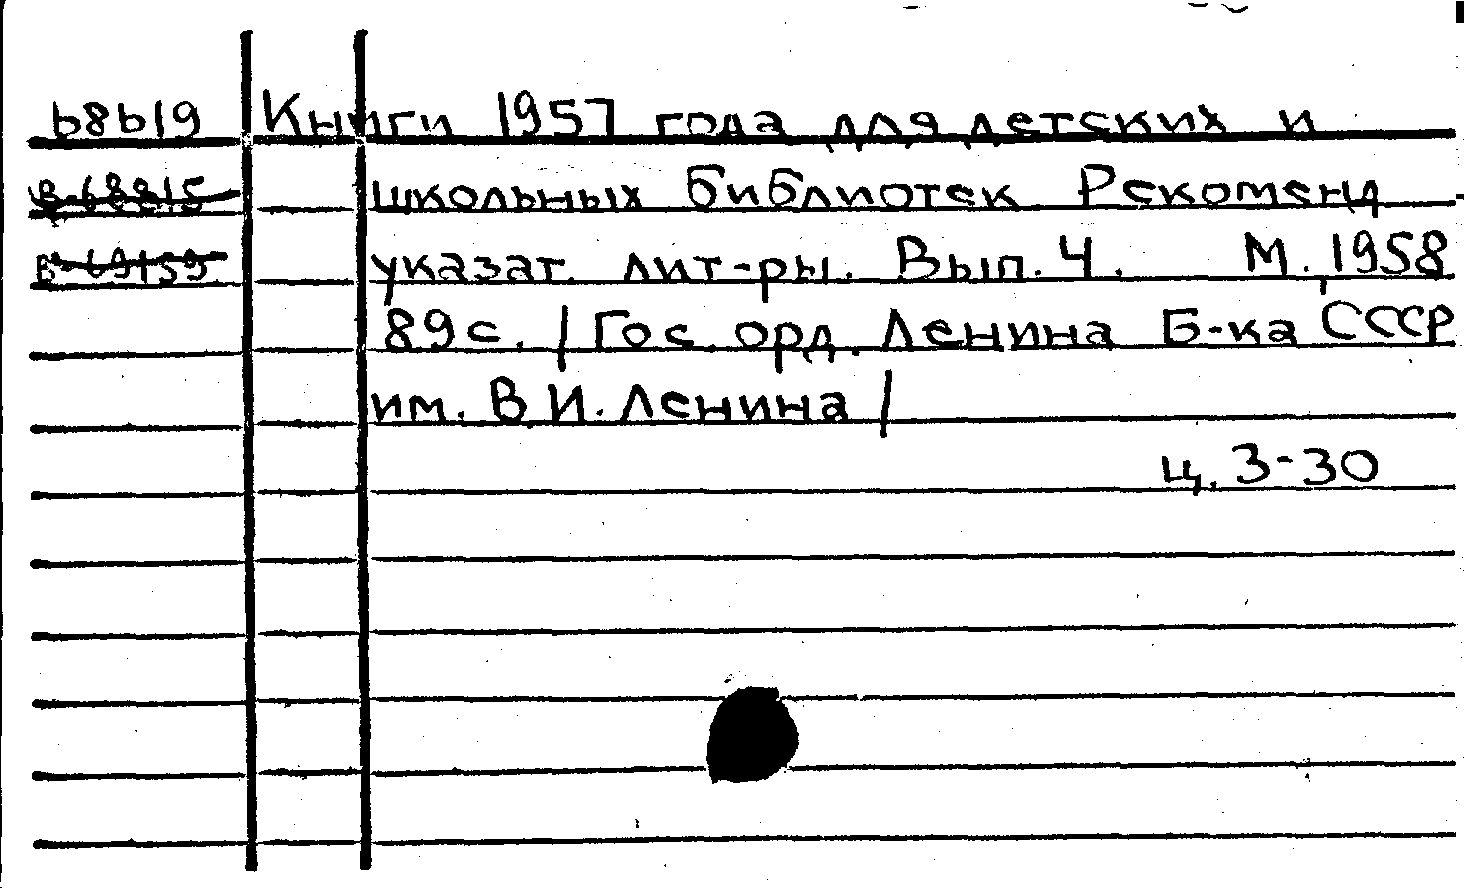 68619 Книги 1957 года для детских и
В-68815 школьных библиотек Рекоменд
В-69159 указат. лит-ры. Вып. 4. М., 1958
89 с. / Гос. орд. Ленина Б-ка СССР
им. В. И. Ленина /
ц. 3-30